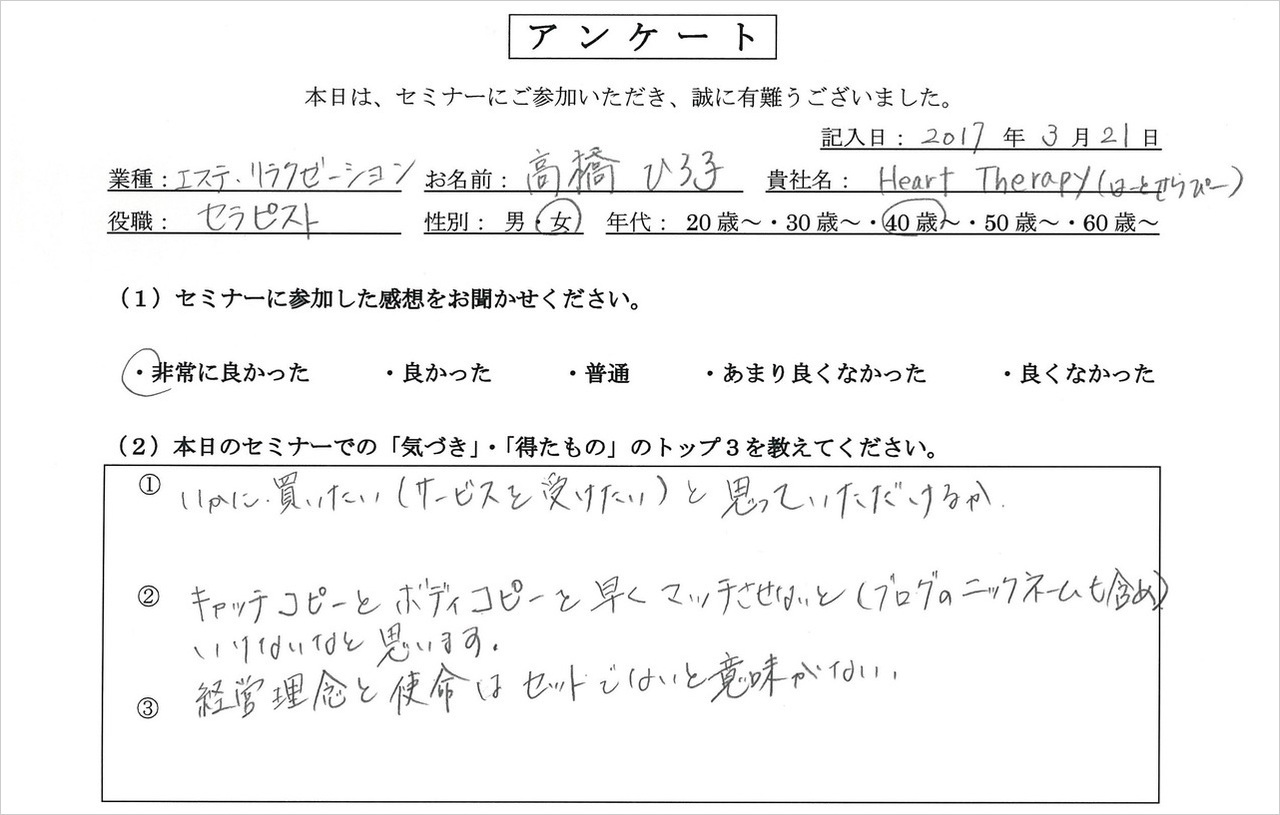 アンケート
本日は、セミナーにご参加いただき、誠に有難うございました。
記入日： 2017 年 3 月 21 日
業種：エステ・リラクゼーション お名前： 高橋 ひろ子 貴社名： Heart Therapy (はーとせらぴー)
役職： セラピスト 性別： 男・女 年代： 20歳～・30歳～・40歳～・50歳～・60歳～
（1）セミナーに参加した感想をお聞かせください。
・非常に良かった ・良かった ・普通 ・あまり良くなかった ・良くなかった
（2）本日のセミナーでの「気づき」・「得たもの」のトップ3を教えてください。
① いかに買いたい(サービスを受けたい)と思っていただけるか.
② キャッチコピーとボディコピーを早くマッチさせないと(ブログのニックネームも含め)
いけないなと思います.
③ 経営理念と使命はセットでないと意味がない.